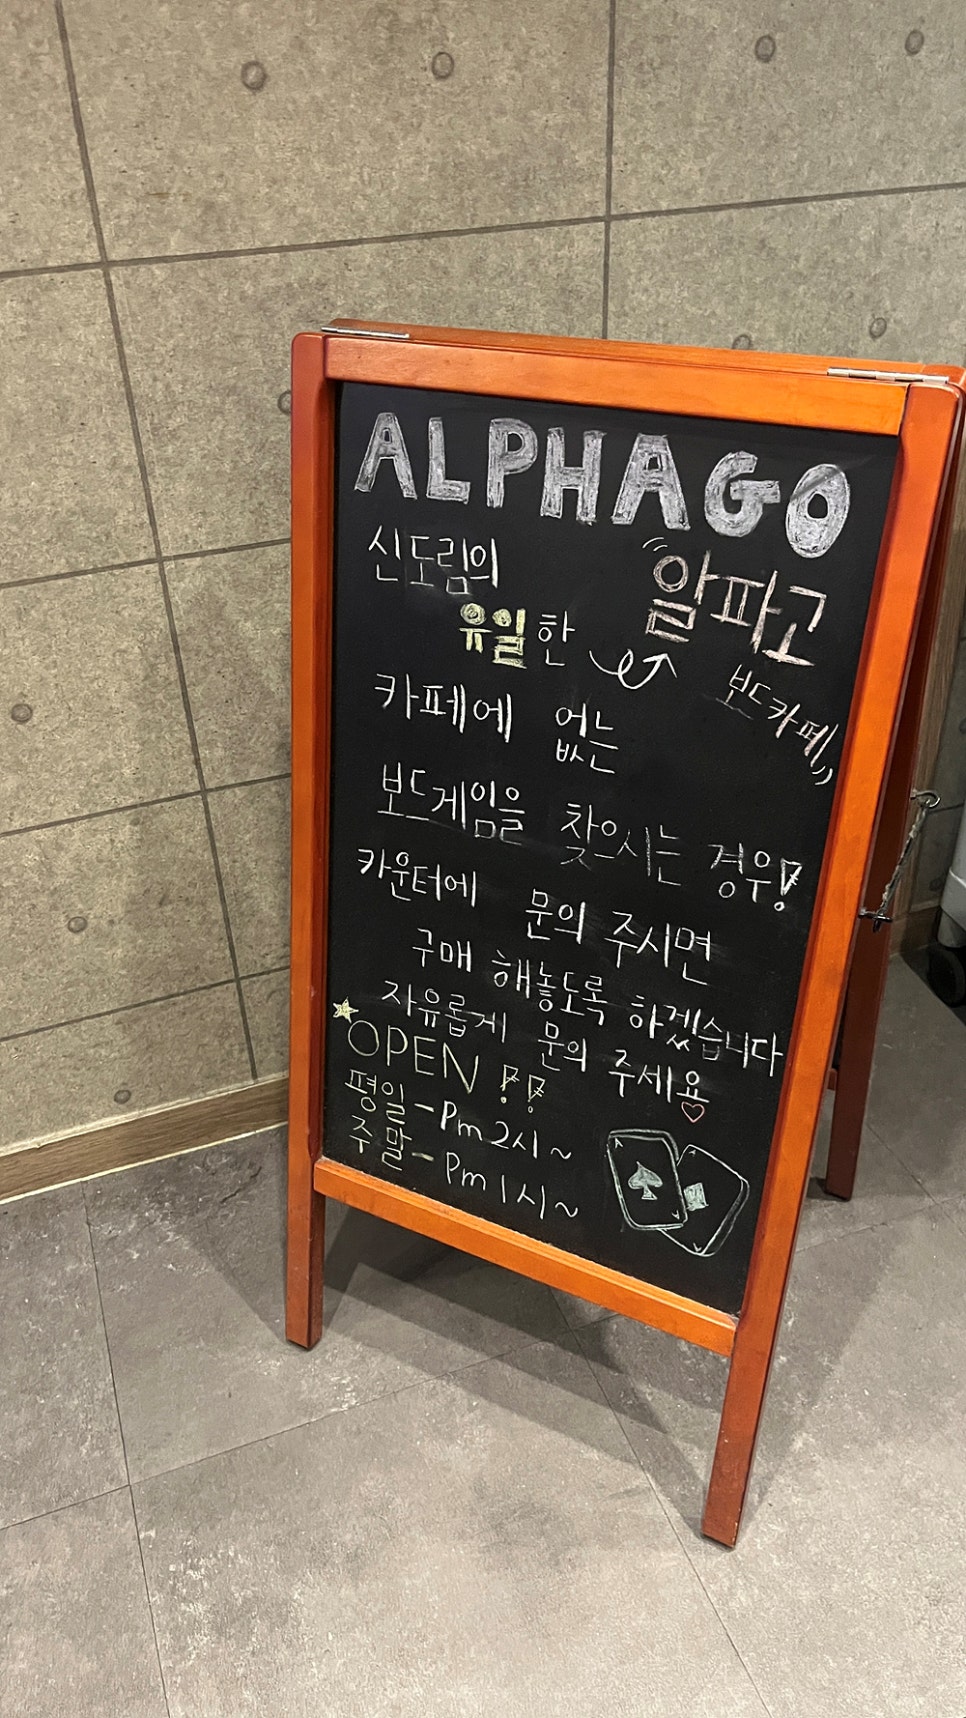 ALPHAGO
신도림의
유일한
"알파고
보드카페"
카페에 없는
보드게임을 찾으시는 경우!
카운터에 문의 주시면
구매 해놓도록 하겠습니다
자유롭게 문의 주세요♡
☆OPEN!!
평일 - Pm 2시 ~
주말 - Pm 1시 ~
A
A
A
A